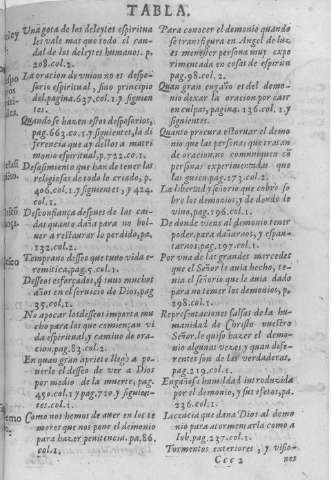 TABLA.
Vna gota de los deleytes espiritua
les vale mas que todo el cau-
dal de los deleytes humanos. p.
208.col.2.
La oracion de vnion no es despo-
sorio espiritual, sino principio
del, pagina.637.col.1.y siguien
tes.
Quando se hazen estos desposorios,
pag.663.co.1.y siguientes, la di
ferencia que ay dellos a matri
monio espiritual, p.722.co.1.
Desasimiento que han de tener las
religiosas de todo lo criado, p.
406.col.1.y siguientes, y 424.
col.1.
Desconfiança despues de las cai-
das quanto daña para no bol-
uer a restaurar lo perdido, pa,
132.col.2.
Temprano desseo que tuuo vida e-
remitica, pag.5.col.1.
Desseos esforçados, q̃ tuuo muchos
años en el seruicio de Dios, pag
35.col.1.
No apocar los desseos importa mu
cho para los que comiençan vi
da espiritual, y camino de ora-
cion, pag.83.col.2.
En quan gran aprieto llegò a po-
nerle el desseo de ver a Dios
por medio de la muerte, pag.
450.col.1 y pag.710.y siguien-
tes.col.1.
Como nos hemos de auer en los te
mores que nos pone el demonio
para hazer penitencia. pa,86.
col.1.
Para conocer el demonio quando
se transfigura en Angel de luz.
es menester persona muy expe
rimentada en cosas de espiritu
pag.98.col.2.
Quan gran engaño es del demo-
nio dexar la oracion por caer
en culpas, pagina.136.col.1.y
siguientes.
Quanto procura estoruar el demo
nio que las personas que tratan
de oracion no comuniquen cõ
personas experimentadas que
las guien pag.173.col.2.
La libertad y señorio que cobrò so
bre los demonios, y de donde le
vino, pag.196.col.1.
De donde viene al demonio tener
poder, para dañarnos, y espan-
tarnos, pag.197.col.1.
Por vna de las grandes mercedes
que el Señor le auia hecho, te-
nia el señorio que le auia dado
para no temer los demonios, p.
198.col.1.
Representaciones falsas de la hu-
manidad de Christo nuestro
Señor, le quiso hazer el demo-
nio algunas vezes, y quan dife-
rentes son de las verdaderas,
pag.219.col.1.
Engañosa humildad introduzida
por el demonio, y sus efetos, pa.
236.col.1.
Licencia que dana Dios al demo
nio para atormentarla como a
Iob.pag.237.col.1.
Tormentos exteriores, y visio-
Ccc 2
nes